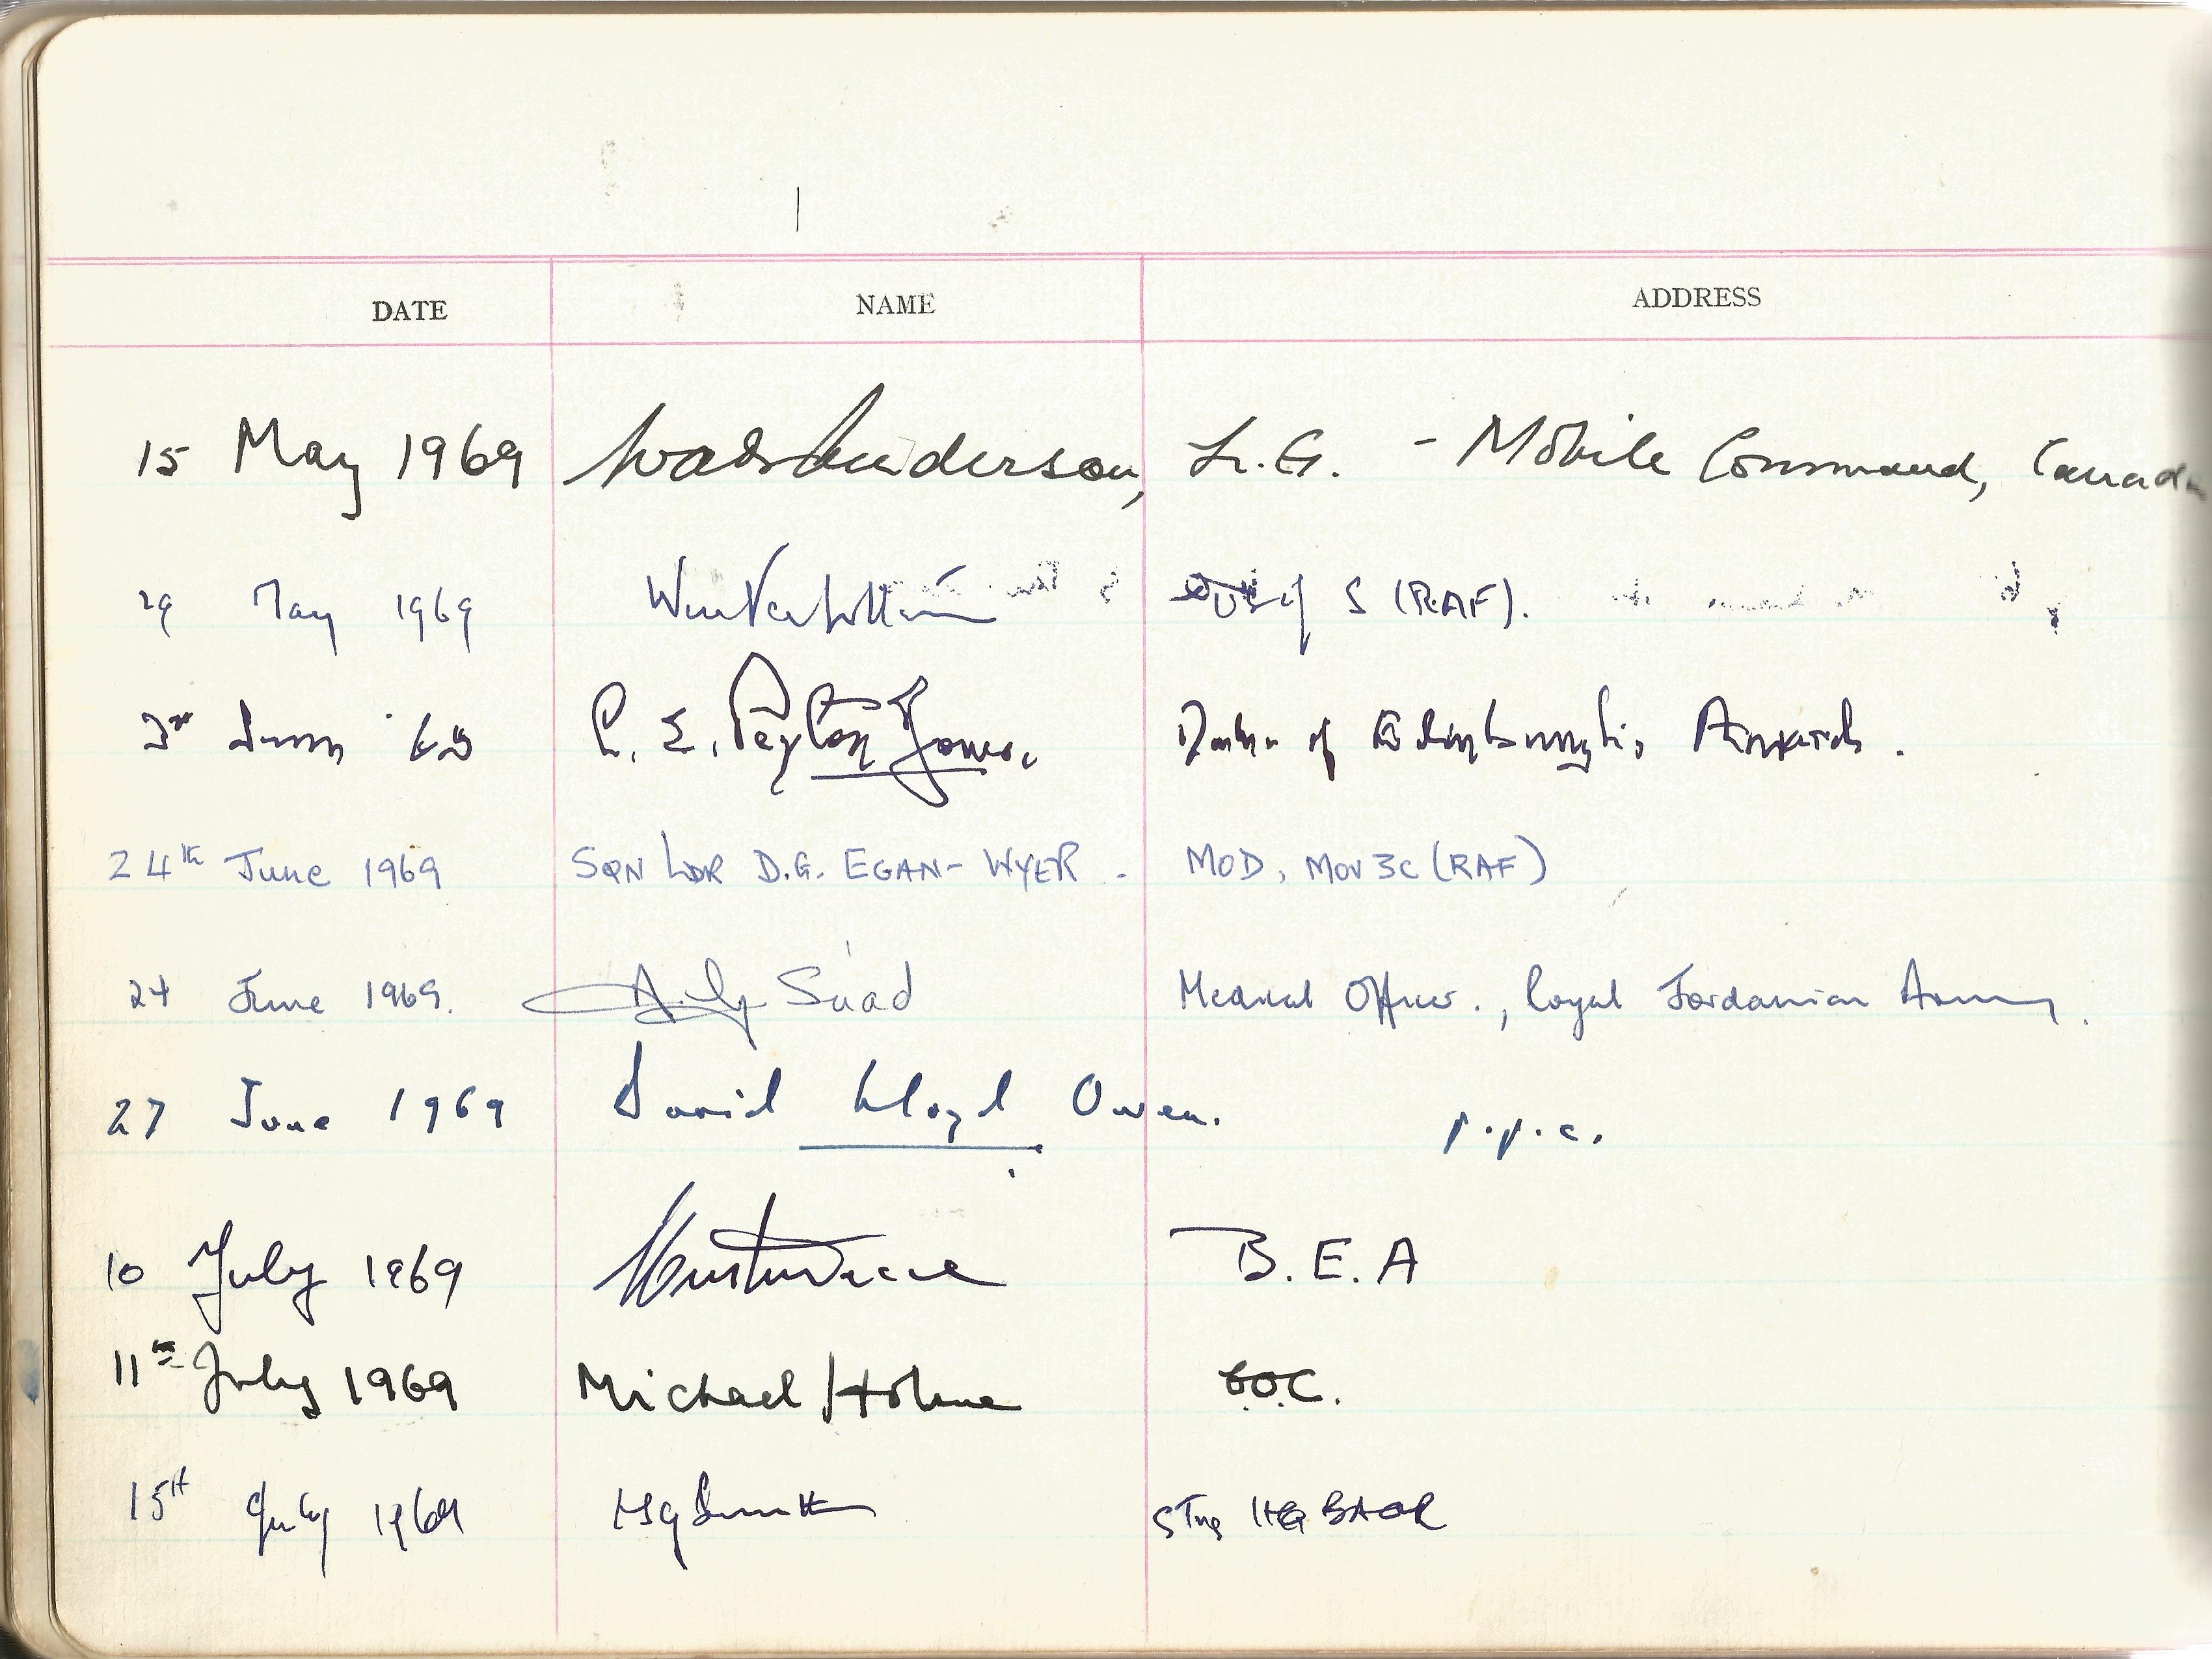 DATE NAME ADDRESS
15 May 1969 Anderson, L.G. - Mobile Command, Canada
29 May 1969 S (RAF).
3rd June '69 C. E. Peyton Jones. Duke of Edinburgh's Awards.
24th June 1969 SQN LDR D.G. EGAN-WYER. MOD, MOV 3C (RAF)
24 June 1969. Suad Medical Officer., Royal Jordanian Army.
27 June 1969 David Lloyd Owen. p.p.c.
10 July 1969 B.E.A
11th July 1969 Michael Holme G.O.C.
15th July 1969 Smith HQ BAOR